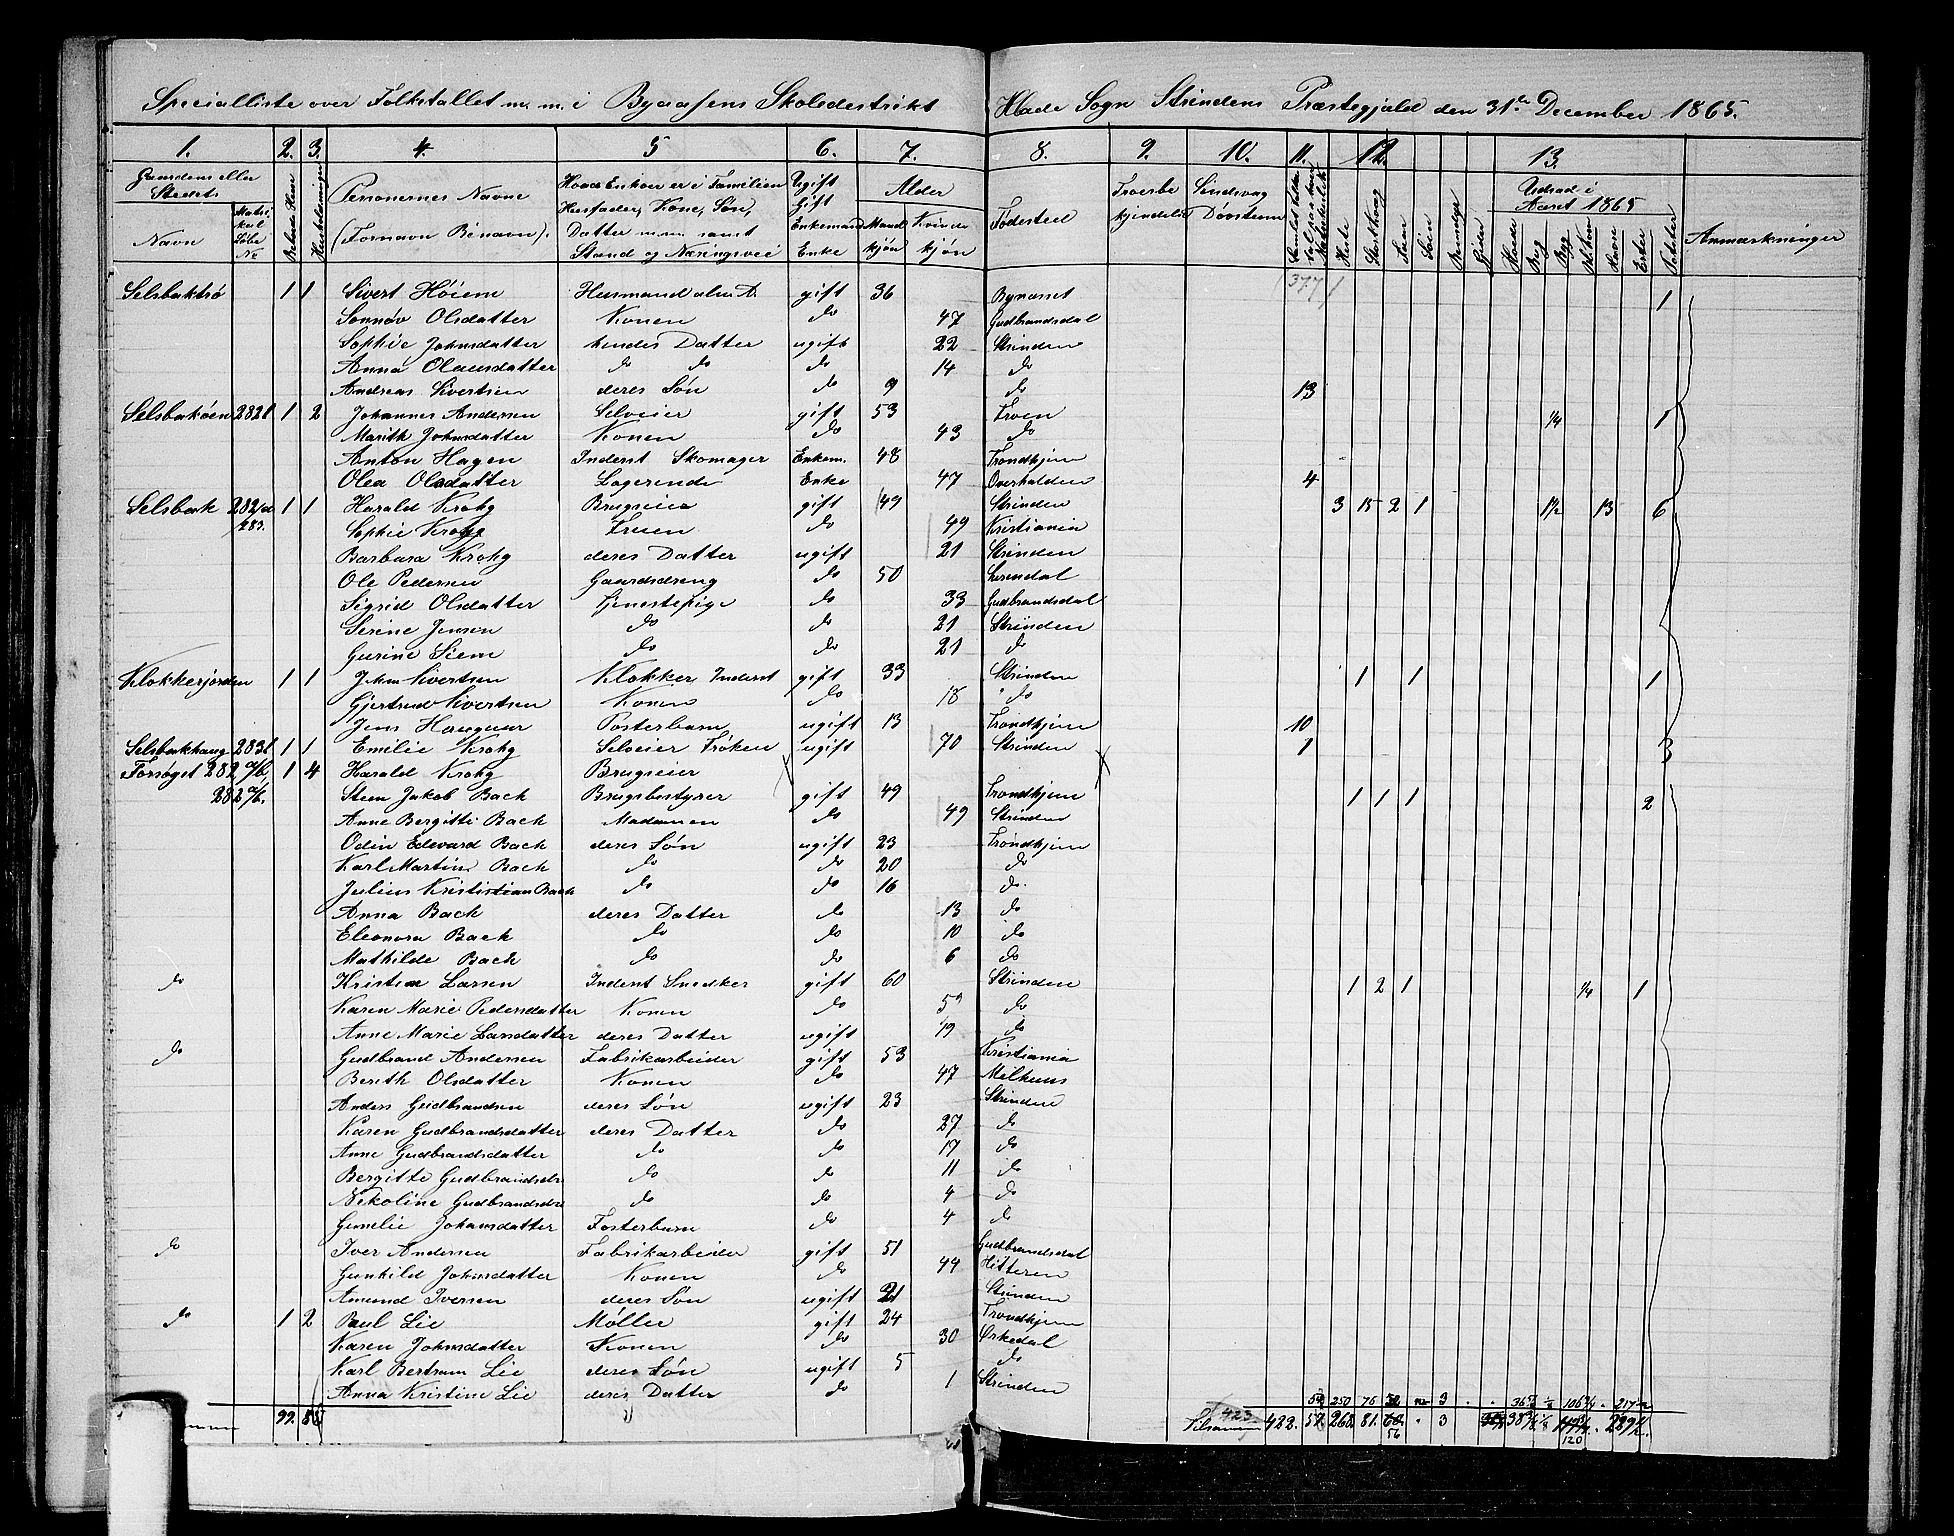 Specialliste over Folketallet m. m. i Byaasens Skoledestrikt Hlade Sogn Strindens Præstegjæld den 31te December 1865.
1. 2. 3. 4. 5 6. 7. 8. 9. 10. 11. 12. 13.
Gaardens eller Stedets Navn Matrikul Løbe No Beboede Huse Huusholdninger Personernes Navne (Fornavn Binavn). Hvad Enhver er i Familien Husfader, Kone, Søn, Datter m.m. samt Stand og Næringsvei Ugift Gift Enkemand Enke Alder Mandkjøn Kvindekjøn Fødested Troesbekjendelse Sindsvag Døvstum Heste Stort Kvæg Faar Sviin Rensdyr Gjeder Udsæd i Aaret 1865 Hvede Rug Byg Havre Erter Poteter Anmærkninger
Selsbaktrø 1 1 Sivert Høiem Husmand gift 36 Bynæsset 377 1
Sonnøv Olsdatter Konen do 47 Gudbrandsdal
Sophie Johnsdatter hendes Datter ugift 22 Strinden
Anna Olausdatter do do do 14 do
Andreas Sivertsen deres Søn do 9 do 13
Selsbakøen 282f 1 2 Johannes Andersen Selveier gift 53 Froen 1/4 1
Marith Johnsdatter Konen do 43 do
Anton Hagen Inderst Skomager Enkem. 48 Trondhjem
Olea Olsdatter Logerende Enke 47 Overhalden 4
Selsbak 282/d 283. 1 1 Harald Krohg Brugseier gift 49 Strinden 3 15 2 1 1½ 13 6
Sophie Krohg Fruen do 49 Kristiania
Barbara Krohg deres Datter ugift 21 Strinden
Ole Pedersen Gaardsdreng do 50 Surendal
Sigrid Olsdatter Tjenestepige do 33 Gudbrandsdal
Serine Jensen do do 21 Strinden
Gurine Siem do do 21 do
Klokkerjorden 1 1 John Sivertsen Klokker Inderst gift 33 Strinden 1 1 1
Gjertrud Sivertsen Konen do 18 " do
Jens Haugum Fosterbarn ugift 13 Trondhjem 10
Selsbakhaug 283f 1 1 Emilie Krohg Selveier Frøken ugift 70 Strinden 1 3
Forsøget 282 a/b, 1 4 Harald Krohg Brugseier
282 a/b. Steen Jakob Bach Brugsbestyrer gift 49 Trondhjem 1 1 1 2
Anne Bergitte Bach Madamen do 49 Strinden
Odin Edevard Bach deres Søn ugift 23 Trondhjem
Karl Martin Bach do do 20 do
Julius Krististian Bach do do 16 do.
Anna Bach deres Datter do 13 do
Eleonora Bach do do 10 do
Mathilde Bach do do 6 do
do Kristen Larsen Inderst Snedker gift 60 Strinden 1 2 1 1/4 1
Karen Marie Pedersdatter Konen do 53 do
Anne Marie Larsdatter deres Datter ugift 19 do
do Gudbrand Andersen Fabrikarbeider gift 53 Kristiania
Berith Olsdatter Konen do 47 Melhuus
Anders Gudbrandsen deres Søn ugift 23 Strinden
Karen Gudbrandsdatter deres Datter do 27 do
Anne Gudbrandsdatter do do 17 do
Bergitte Gudbrandsdr do do 11 do
Nikoline Gudbrandsdr do do 4 do
Gunelie Johansdatter Fosterbarn do 4 do
do Iver Andersen Fabrikarbeider gift 51 Gudbrandsdal
Gunhild Johnsdatter Konen do 44 Hitteren
Amund Iversen deres Søn ugift 21 Strinden
do 1 2 Paul Lie Møller gift 24 Trondhjem
Karen Johnsdatter Konen do 30 Orkedal
Karl Bertram Lie deres Søn ugift 5 do
Anna Kristine Lie deres Datter do 1 Strinden
250 76 3 36 106¾ 217½
99. 88 423 Tilsammen 422. 57. 260. 81. 3 289½
56 120